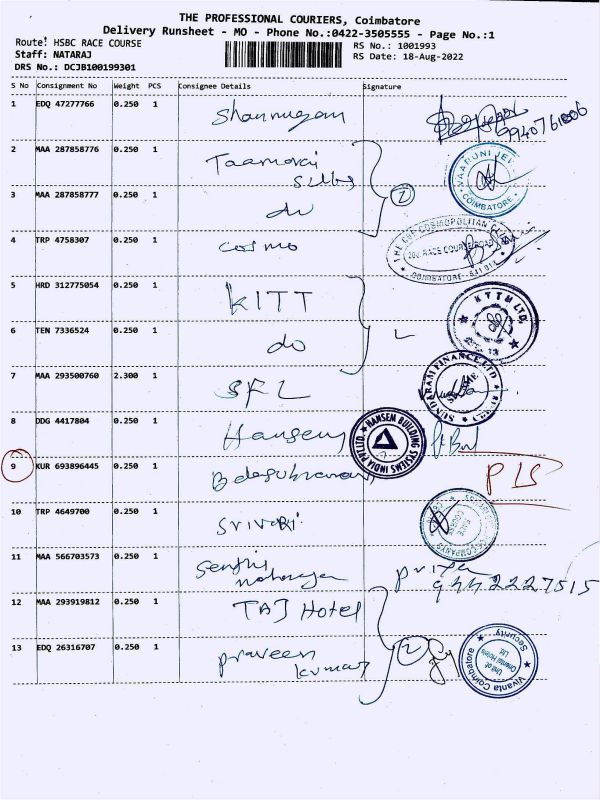 THE PROFESSIONAL COURIERS, Coimbatore
Delivery Runsheet - MO - Phone No.:0422-3505555 - Page No.:1
Route: HSBC RACE COURSE
Staff: NATARAJ
DRS No.: DCJB100199301
RS No.: 1001993
RS Date: 18-Aug-2022
S No Consignment No Weight PCS Consignee Details Signature
1 EDQ 47277766 0.250 1 Shanmugam
2 MAA 287858776 0.250 1
3 MAA 287858777 0.250 1 do
VAARUNI JEI
COIMBATORE
4 TRP 4758307 0.250 1 Cosmo
THE COSMOPOLITAN
RACE COURSE ROAD
COIMBATORE - 641 018
5 HRD 312775054 0.250 1 KITT
6 TEN 7336524 0.250 1 do
KTTM LTD.
7 MAA 293500760 2.300 1 SFL
SUNDARAM FINANCE LTD
8 DDG 4417804 0.250 1 Hansem
HANSEM BUILDING SYSTEMS INDIA PVT LTD
9 KUR 693896445 0.250 1
10 TRP 4649700 0.250 1 Srivari
11 MAA 566703573 0.250 1 Senthil priya
9442227515
12 MAA 293919812 0.250 1 TAJ Hotel
13 EDQ 26316707 0.250 1 praveen
kumar 2
Vivanta Coimbatore
Security
Unit of
Oriental Hotels
Ltd